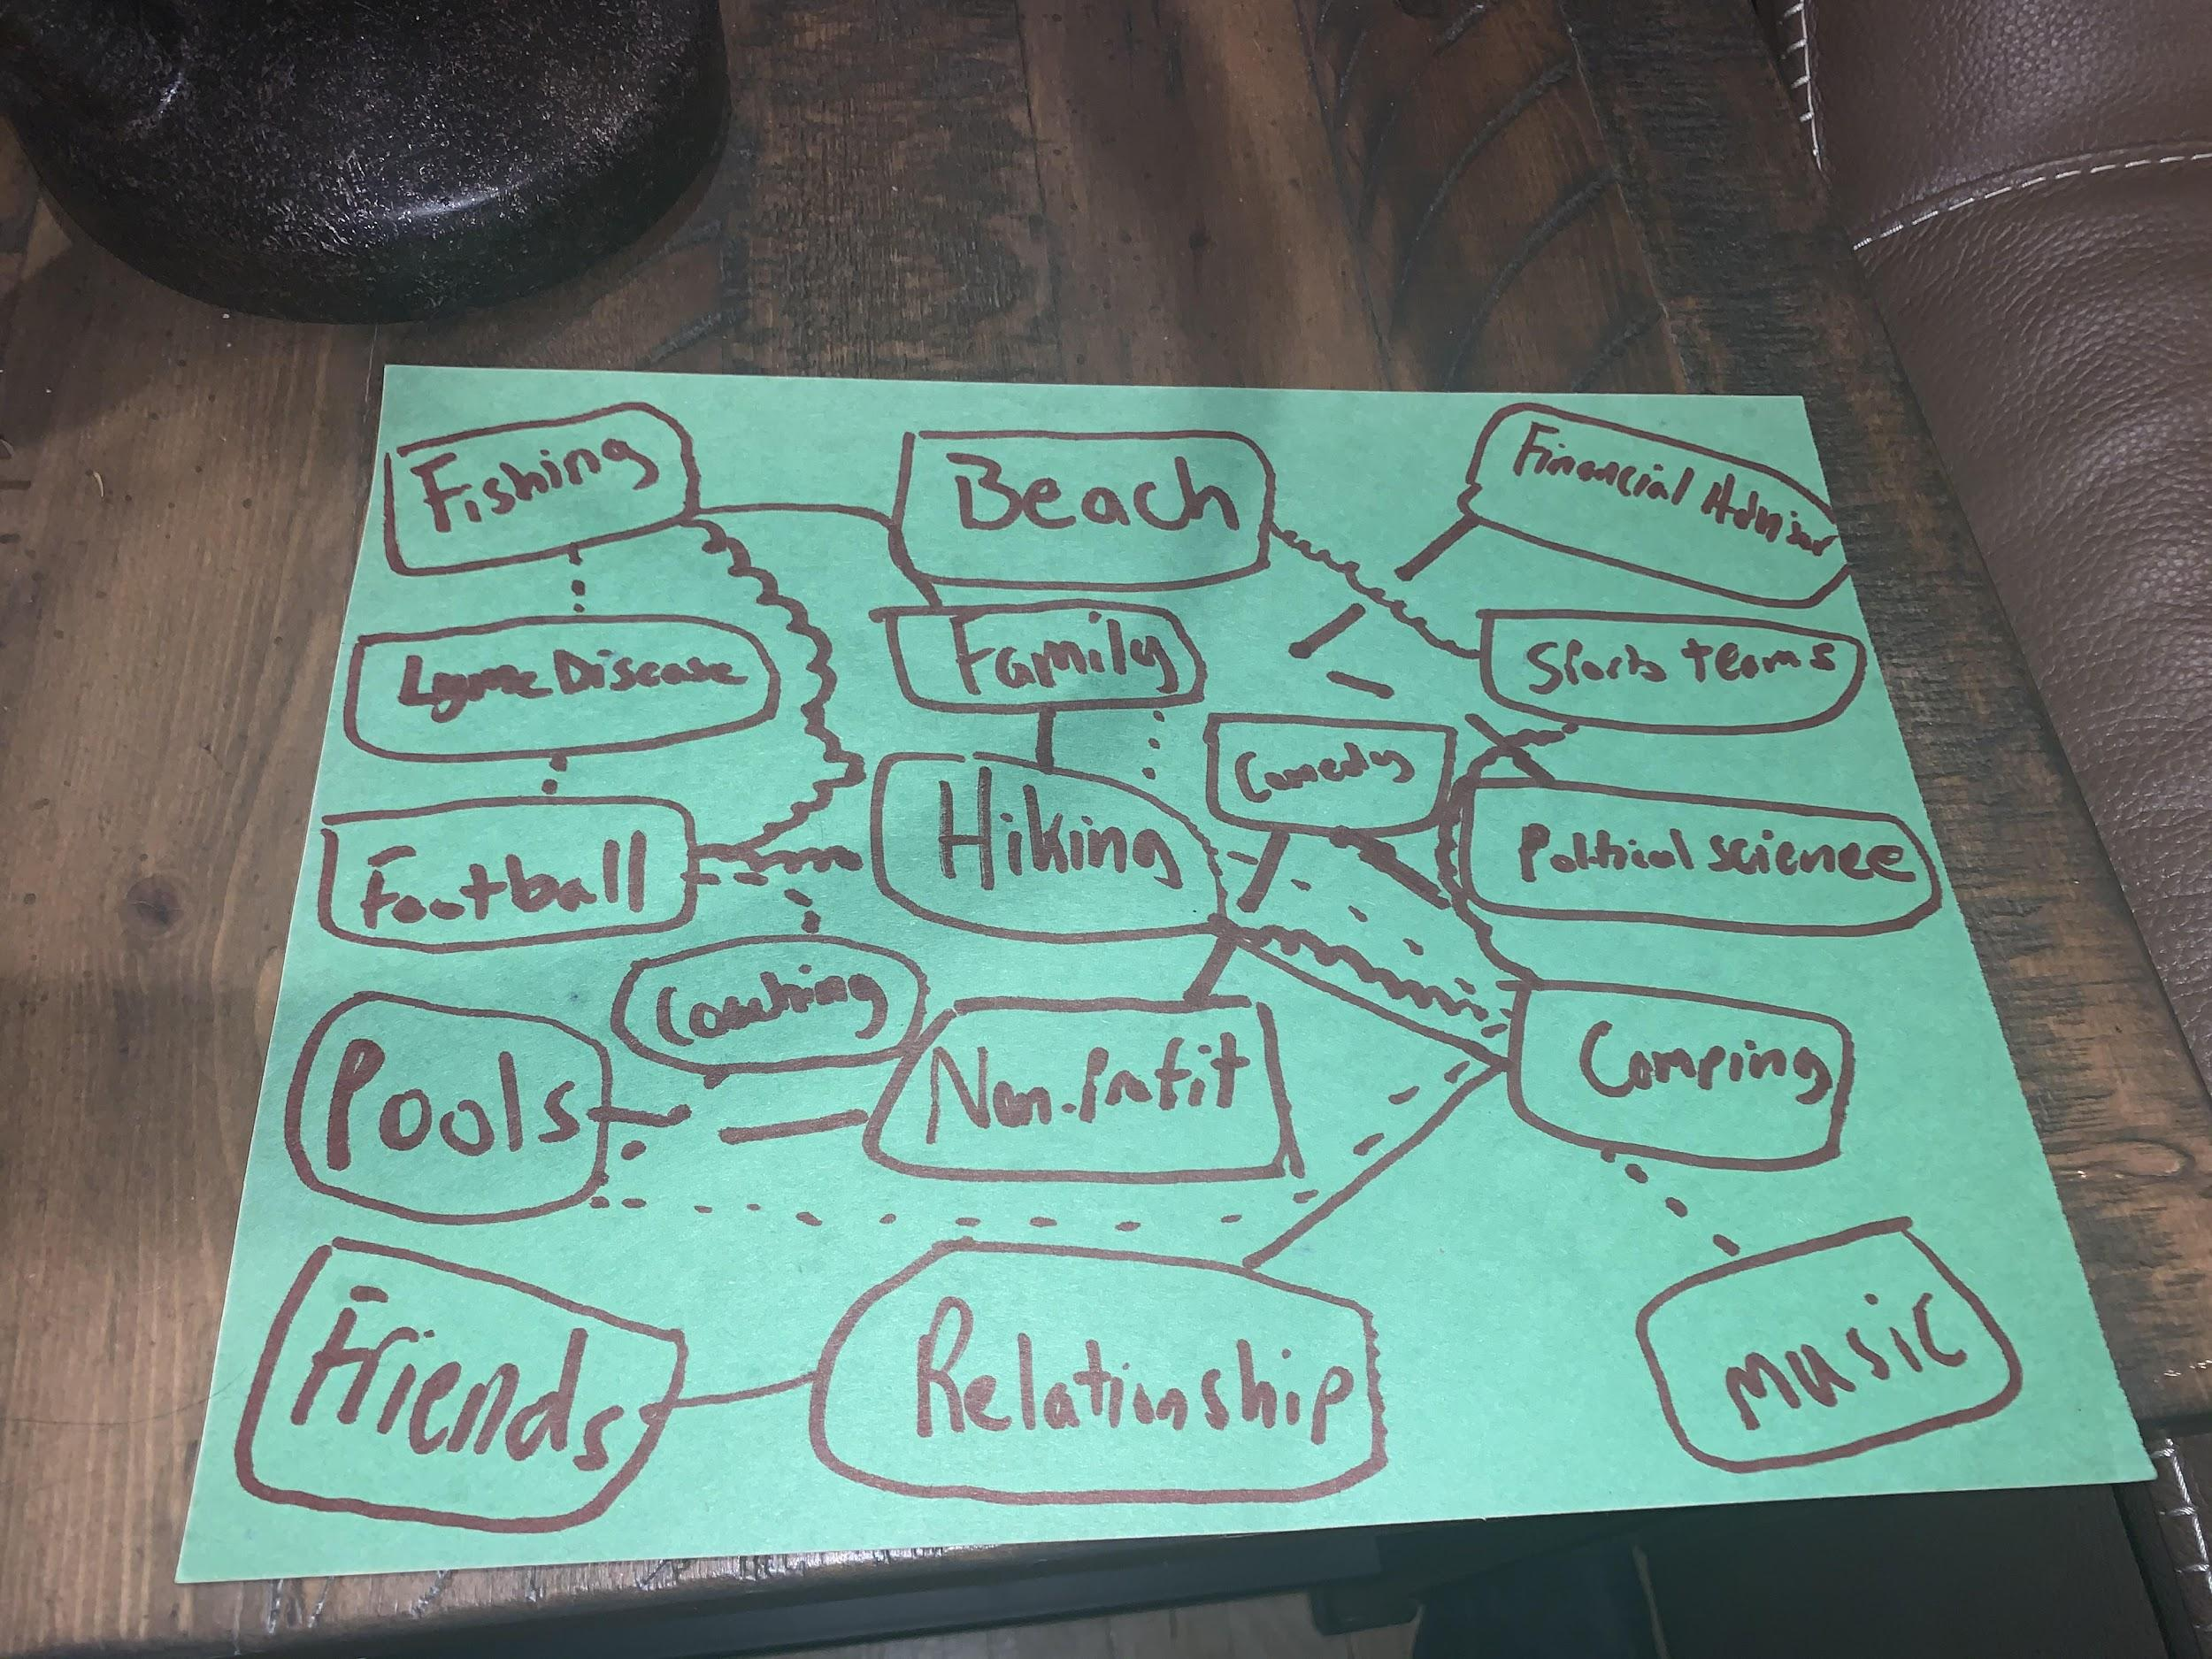 Fishing
Beach
Financial Advisor
Lyme Disease
Family
Sports teams
Comedy
Football
Hiking
Political science
Coaching
Pools
Non-Profit
Camping
Friends
Relationship
music